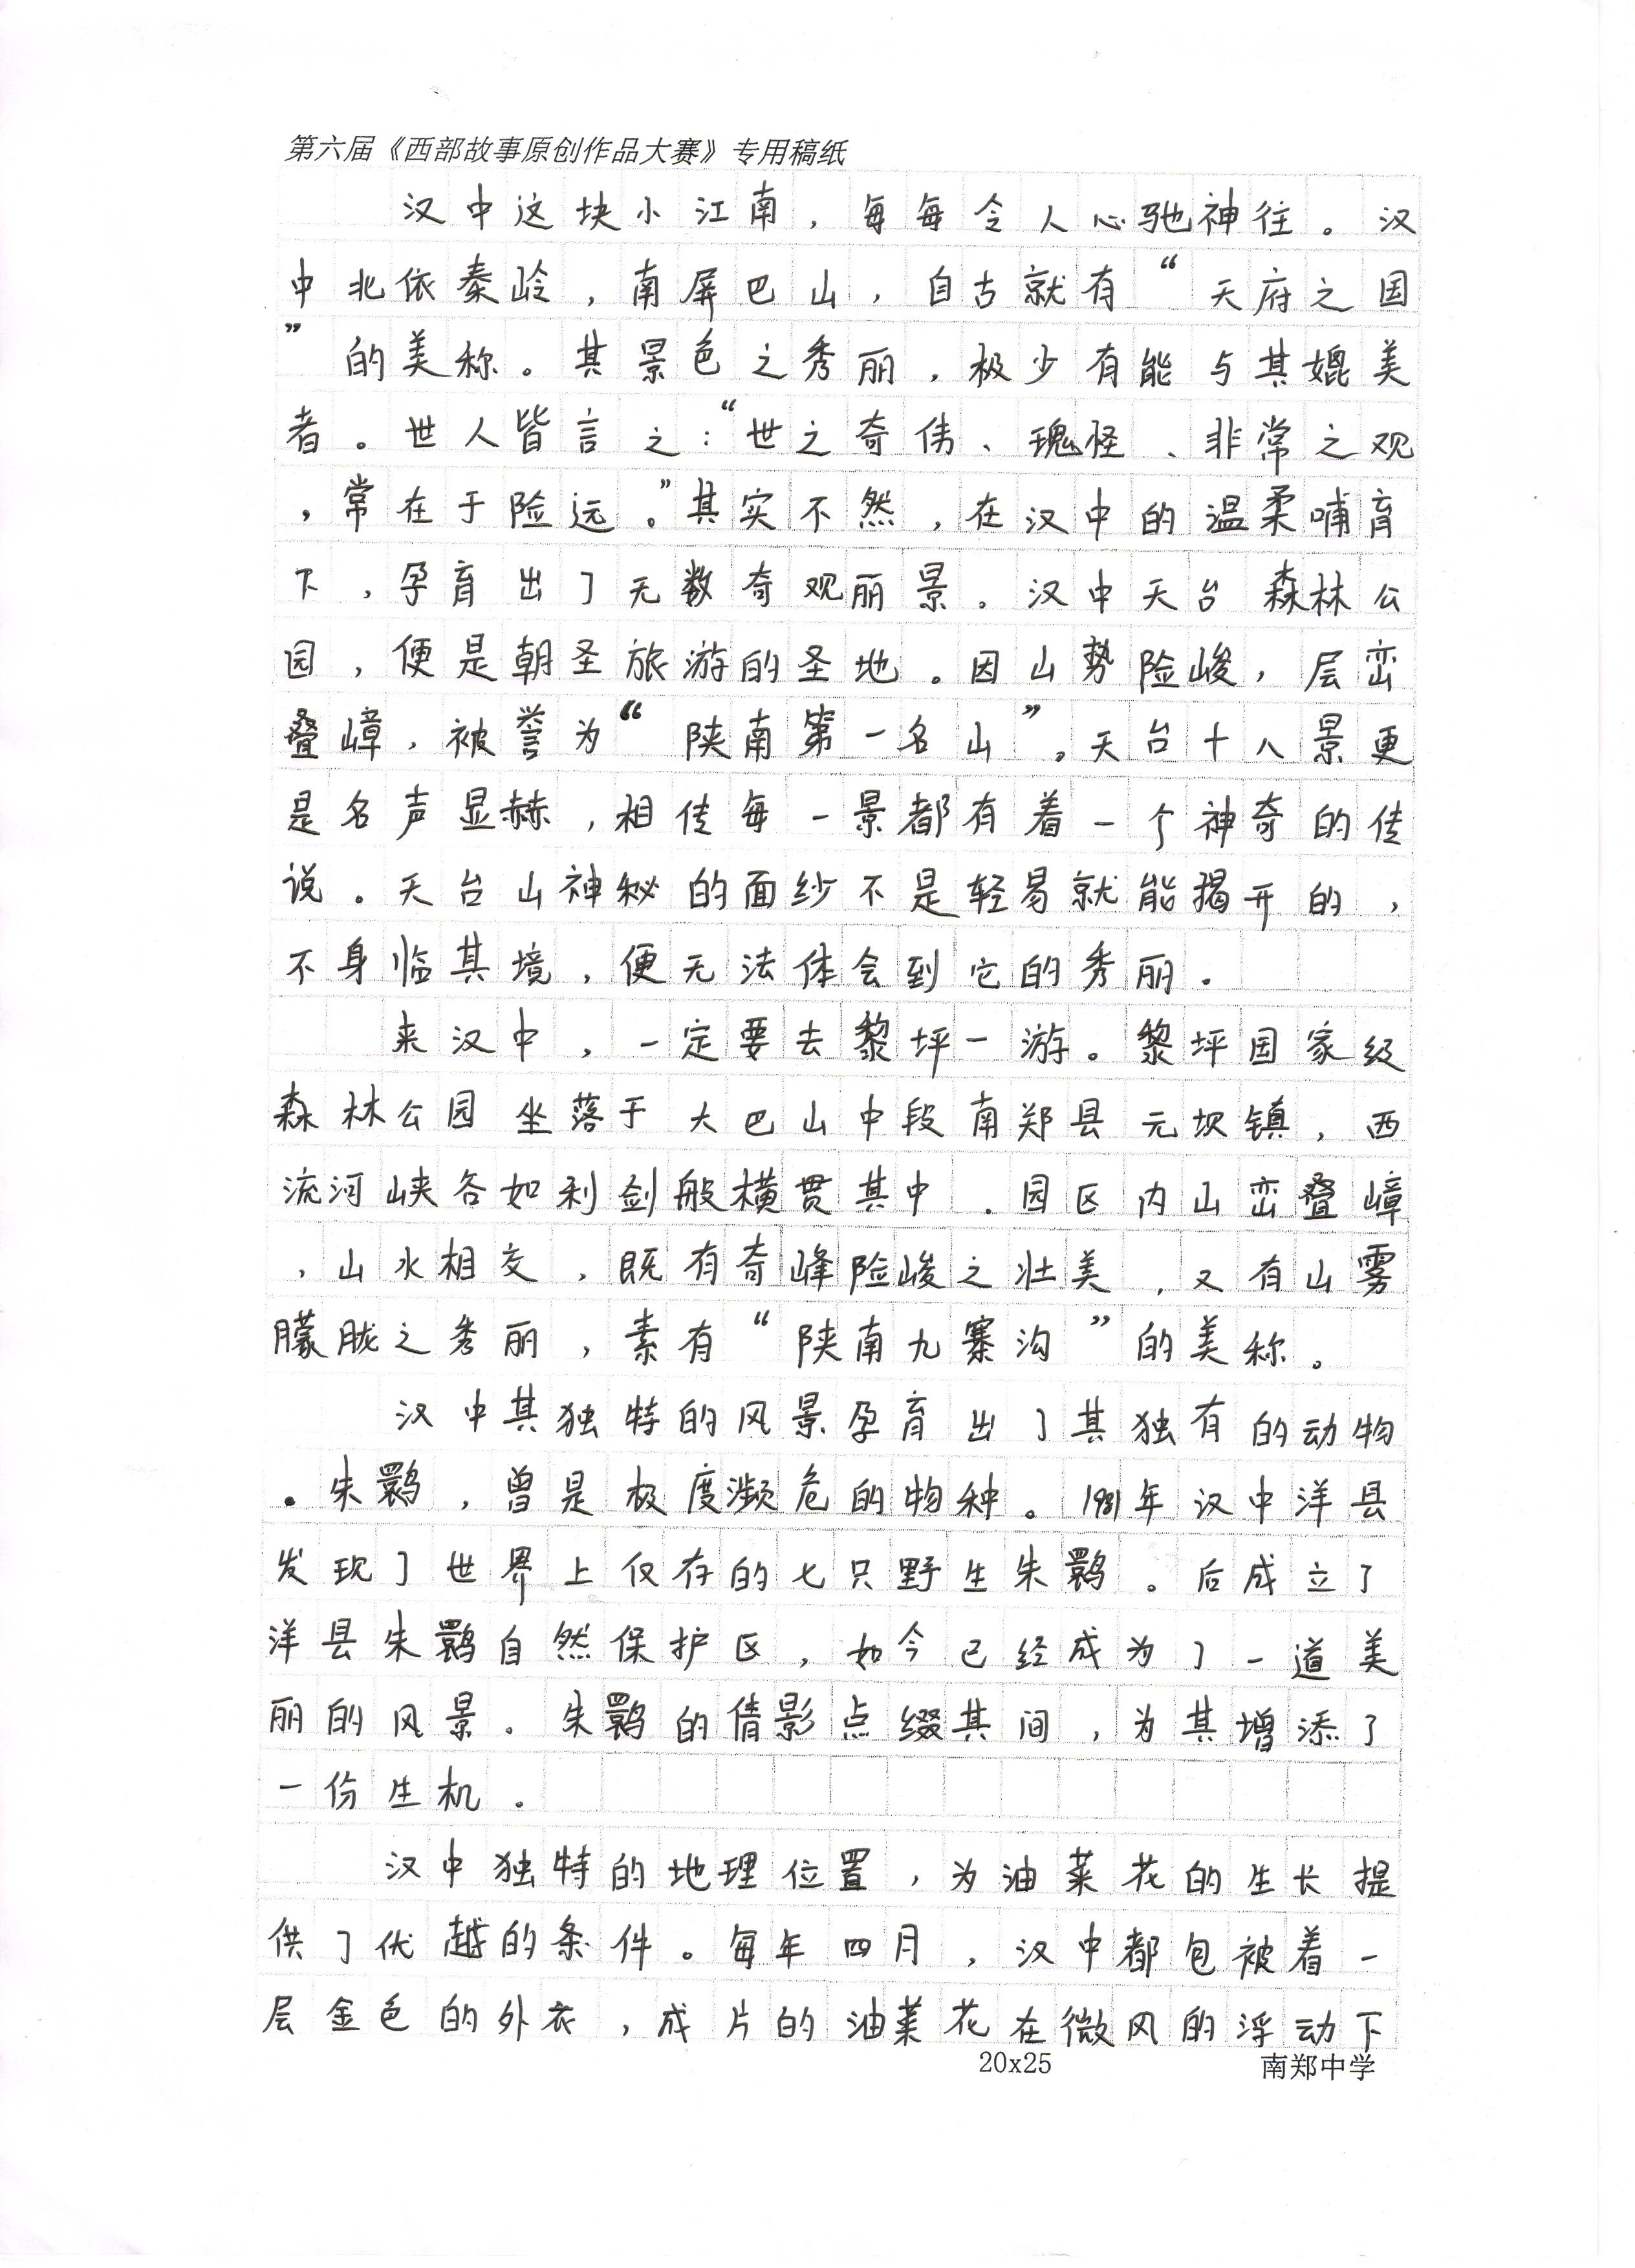 第六届《西部故事原创作品大赛》专用稿纸
汉中这块小江南，每每令人心驰神往。汉
中北依秦岭，南屏巴山，自古就有“天府之国
”的美称。其景色之秀丽，极少有能与其媲美
者。世人皆言之：“世之奇伟、瑰怪、非常之观
，常在于险远。”其实不然，在汉中的温柔哺育
下，孕育出了无数奇观丽景。汉中天台森林公
园，便是朝圣旅游的圣地。因山势险峻，层峦
叠嶂，被誉为“陕南第一名山”。天台十八景更
是名声显赫，相传每一景都有着一个神奇的传
说。天台山神秘的面纱不是轻易就能揭开的，
不身临其境，便无法体会到它的秀丽。
来汉中，一定要去黎坪一游。黎坪国家级
森林公园坐落于大巴山中段南郑县元坝镇，西
流河峡各如利剑般横贯其中．园区内山峦叠嶂
，山水相交，既有奇峰险峻之壮美，又有山雾
朦胧之秀丽，素有“陕南九寨沟”的美称。
汉中其独特的风景孕育出了其独有的动物
。朱鹮，曾是极度濒危的物种。1981年汉中洋县
发现了世界上仅存的七只野生朱鹮。后成立了
洋县朱鹮自然保护区，如今已经成为了一道美
丽的风景。朱鹮的倩影点缀其间，为其增添了
一份生机。
汉中独特的地理位置，为油菜花的生长提
供了优越的条件。每年四月，汉中都包被着一
层金色的外衣，成片的油菜花在微风的浮动下
20x25 南郑中学